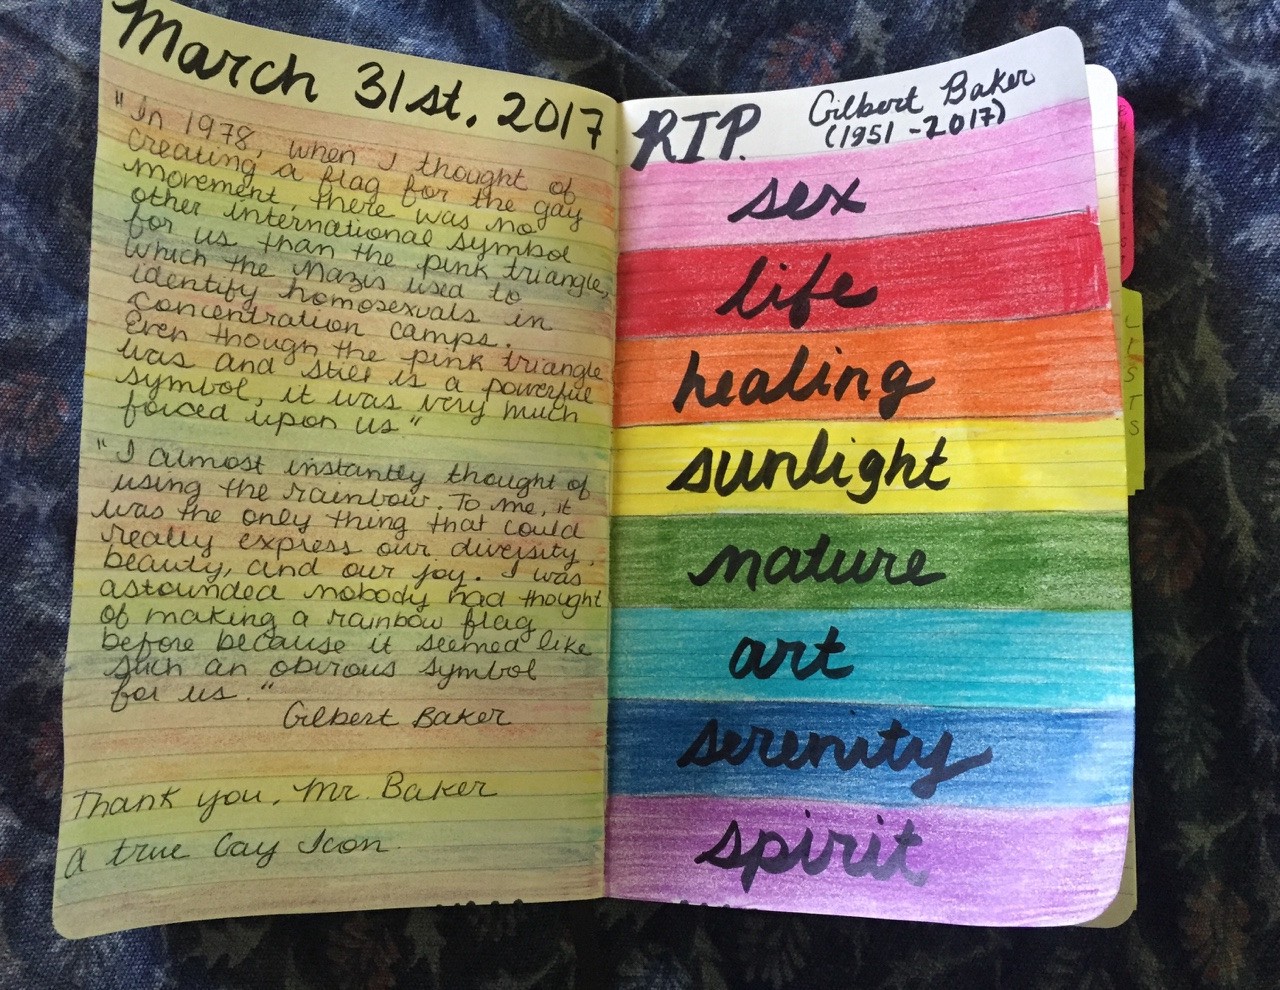 March 31st. 2017
"In 1978, when I thought of
creating a flag for the gay
movement, there was no
other international symbol
for us than the pink triangle,
which the Nazis used to
identify homosexuals in
concentration camps.
Even though the pink triangle
was and still is a powerful
symbol, it was very much
forced upon us"
"I almost instantly thought of
using the rainbow. To me, it
was the only thing that could
really express our diversity,
beauty, and our joy. I was
astounded nobody had thought
of making a rainbow flag
before because it seemed like
such an obvious symbol
for us."
Gilbert Baker
Thank you, Mr. Baker
a true Gay Icon.
RIP. Gilbert Baker
(1951-2017)
sex
life
healing
sunlight
nature
art
serenity
spirit
BUCKETLIST
LISTS